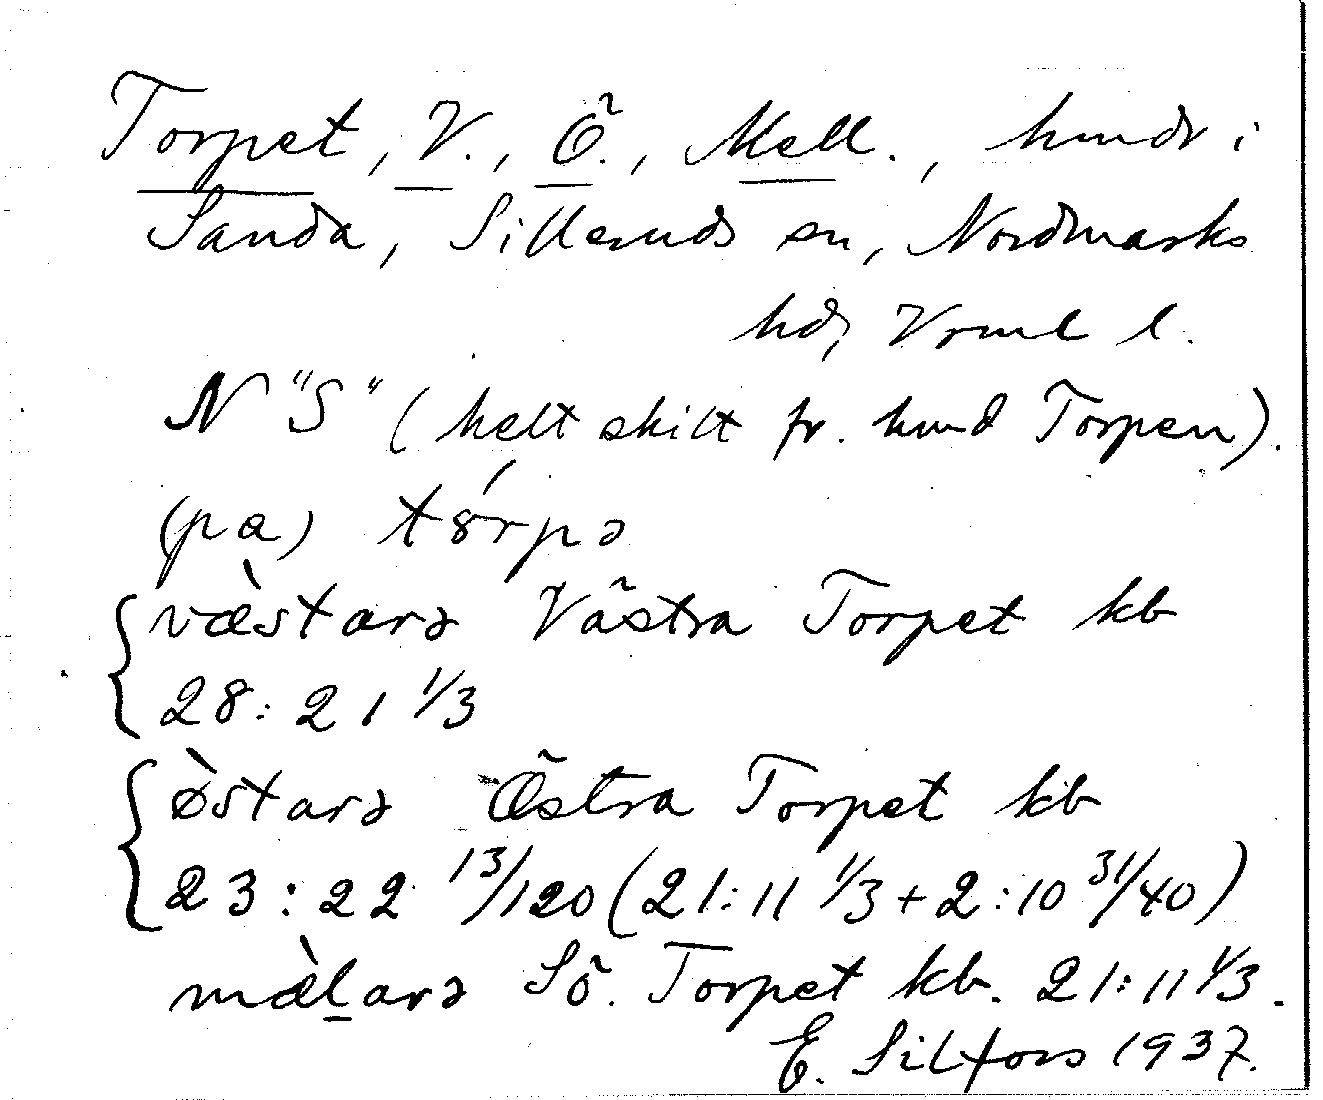 Torpet, V., Ö., Mell., hmdr i
Sanda, Silleruds sn, Nordmarks
hd, Vrml l.
N "S" (helt skilt fr. hmd Torpen).
(pa) tȣ́rpə
væ̀starə Västra Torpet kb
28:21 1/3
ø̀starə Östra Torpet kb
23:22 13/120 (21:11 1/3 + 2:10 31/40)
mæ̀l̠arə Sö. Torpet kb. 21:11 1/3.
E. Silfors 1937.